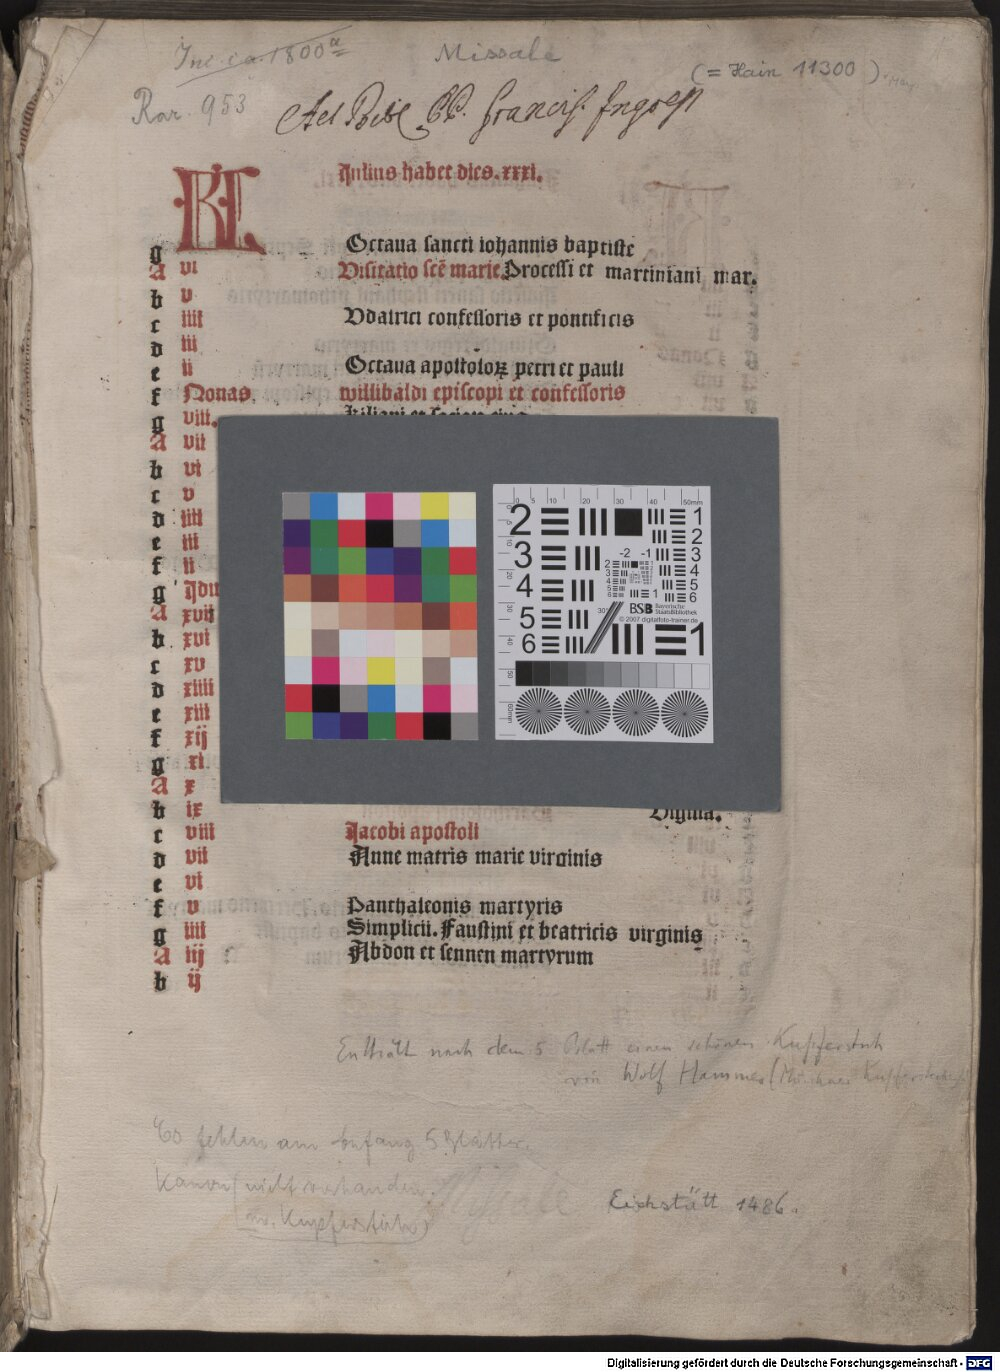 Inc. ca. 1800ᵃ
Missale
(= Hain 11300)
Rar. 953
Ad Bibl PP. Francisc. Ingolst
KL Julius habet dies.xxxi.
g Octaua sancti iohannis baptiste
A vi Visitatio scē marie. Processi et martiniani mar.
b v
c iiii Vdalrici confessoris et pontificis
d iii
e ii Octaua apostoloꝝ petri et pauli
f Nonas willibaldi episcopi et confessoris
g viii. kiliani et socior eius
A vii
b vi
c v
d iiii
e iii
f ii
g Idu
A xvii
b xvi
c xv
d xiiii
e xiii
f xij
g xi
A x
b ix Vigilia.
c viii Jacobi apostoli
d vii Anne matris marie virginis
e vi
f v Panthaleonis martyris
g iiii Simplicii. Faustini et beatricis virginis
A iij Abdon et sennen martyrum
b ij
0 5 10 20 30 40 50mm
2 3 4 5 6
1 2 3 4 5 6
-2 -1
BSB Bayerische StaatsBibliothek
© 2007 digitalfoto-trainer.de
1
Enthält nach dem 5 Blatt einen schönen Kupferstich
von Wolf Hammer (Münchner Kupferstecher)
Es fehlen am Anfang 5 Blätter.
Kanon (nicht vorhanden)
m. Kupferstich)
Missale
Eichstätt 1486.
Digitalisierung gefördert durch die Deutsche Forschungsgemeinschaft - DFG